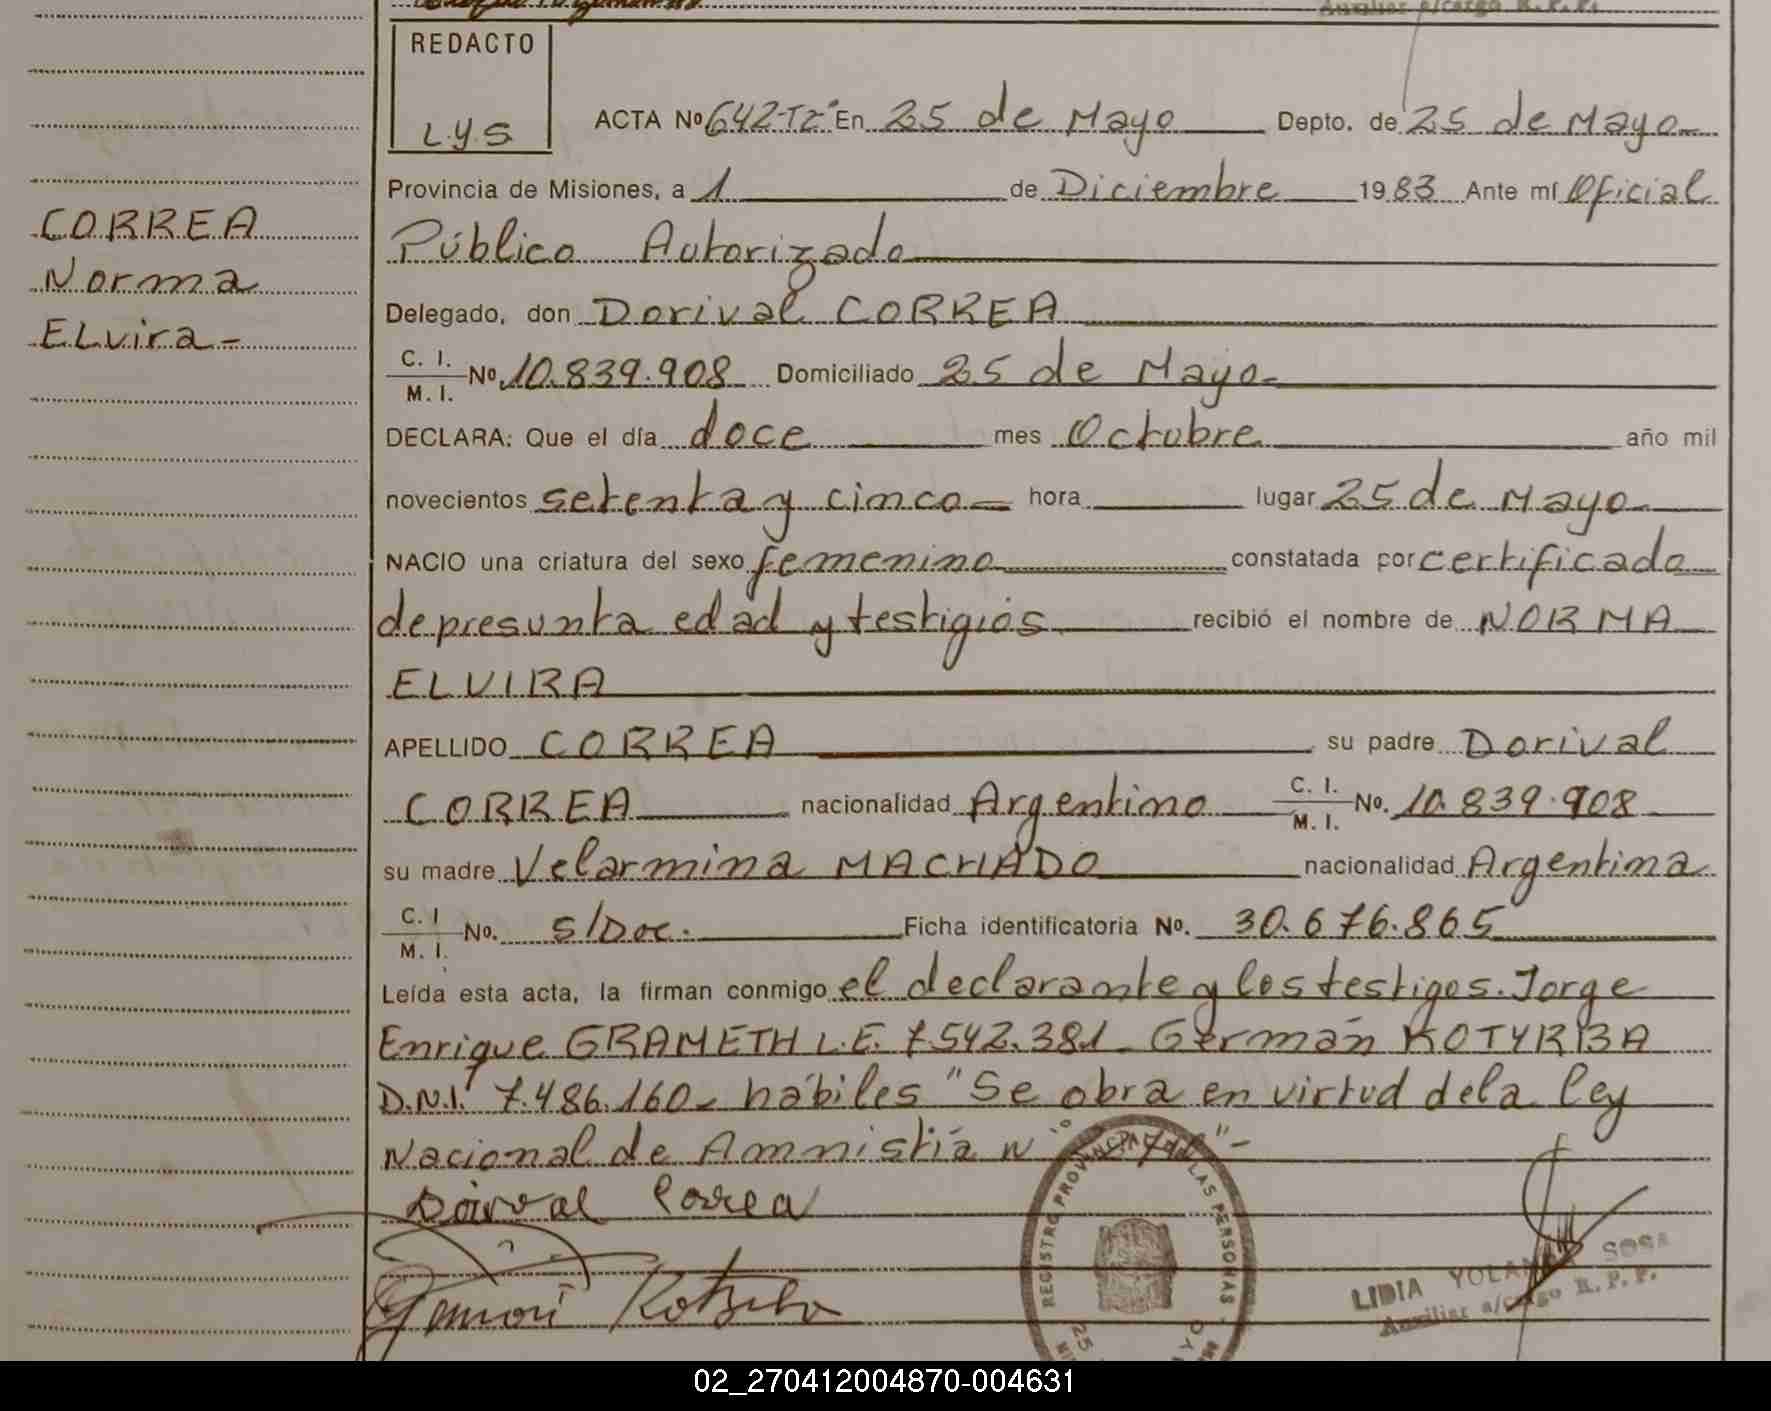 REDACTO
L.y.S
ACTA Nº 642-Tº2º En 25 de Mayo Depto. de 25 de Mayo
Provincia de Misiones, a 1 de Diciembre 1983 Ante mí Oficial
Público Autorizado
Delegado, don Dorival CORREA
C. I. / M. I. Nº 10.839.908 Domiciliado 25 de Mayo
DECLARA: Que el día doce mes Octubre año mil
novecientos setenta y cinco hora lugar 25 de Mayo
NACIO una criatura del sexo femenino constatada por certificado
de presunta edad y testigios recibió el nombre de NORMA
ELVIRA
APELLIDO CORREA su padre Dorival
CORREA nacionalidad Argentino C. I. / M. I. No. 10.839.908
su madre Velarmina MACHADO nacionalidad Argentina
C. I / M. I. No. s/Doc. Ficha identificatoria No. 30.676.865
Leída esta acta, la firman conmigo el declarante y los testigos. Jorge
Enrique GRAMETH L.E. 7.542.381 Germán KOTYRBA
D.N.I. 7.486.160- hábiles "Se obra en virtud de la ley
Nacional de Amnistía Nº
Dorival Correa
CORREA
Norma
ELvira-
REGISTRO PROVINCIAL DE LAS PERSONAS
25
LIDIA YOLANDA SOSA
Auxiliar a/cargo R. P. P.
02_270412004870-004631